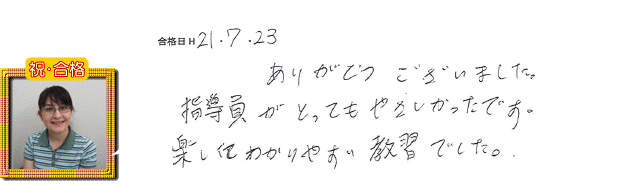 合格日 H 21.7.23
祝・合格
ありがとうございました。
指導員がとってもやさしかったです。
楽しくてわかりやすい教習でした。